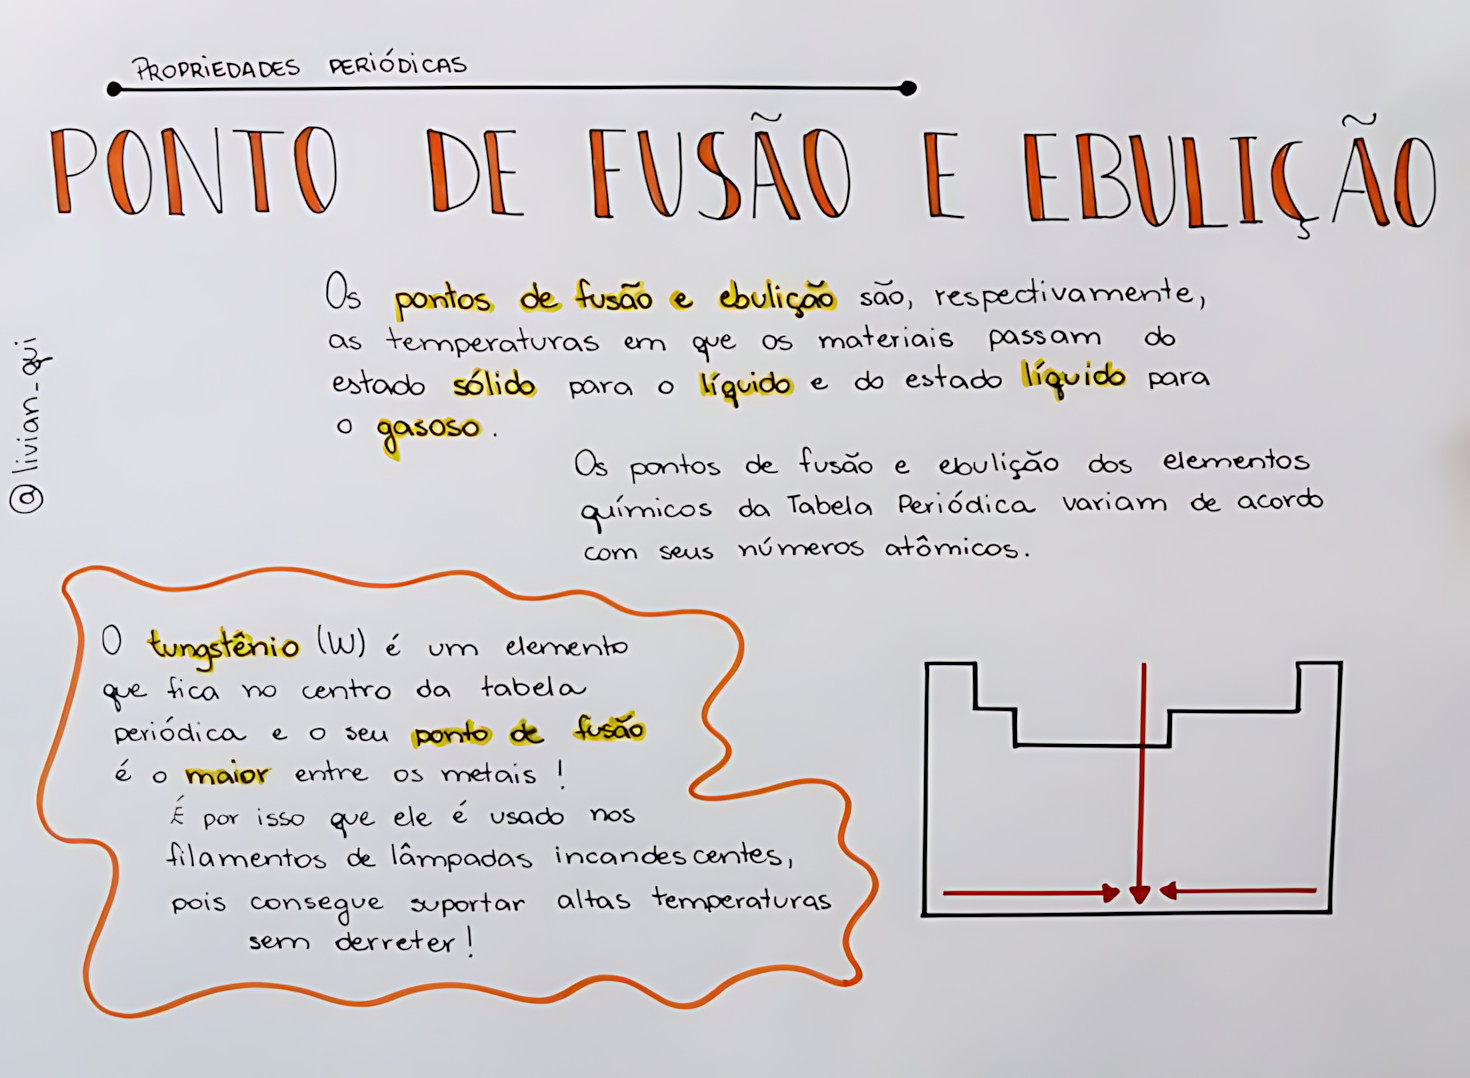 PROPRIEDADES PERIÓDICAS
PONTO DE FUSÃO E EBULIÇÃO
Os pontos de fusão e ebulição são, respectivamente,
as temperaturas em que os materiais passam do
estado sólido para o líquido e do estado líquido para
o gasoso.
Os pontos de fusão e ebulição dos elementos
químicos da Tabela Periódica variam de acordo
com seus números atômicos.
@livian_qui
O tungstênio (W) é um elemento
que fica no centro da tabela
periódica e o seu ponto de fusão
é o maior entre os metais!
É por isso que ele é usado nos
filamentos de lâmpadas incandescentes,
pois consegue suportar altas temperaturas
sem derreter!